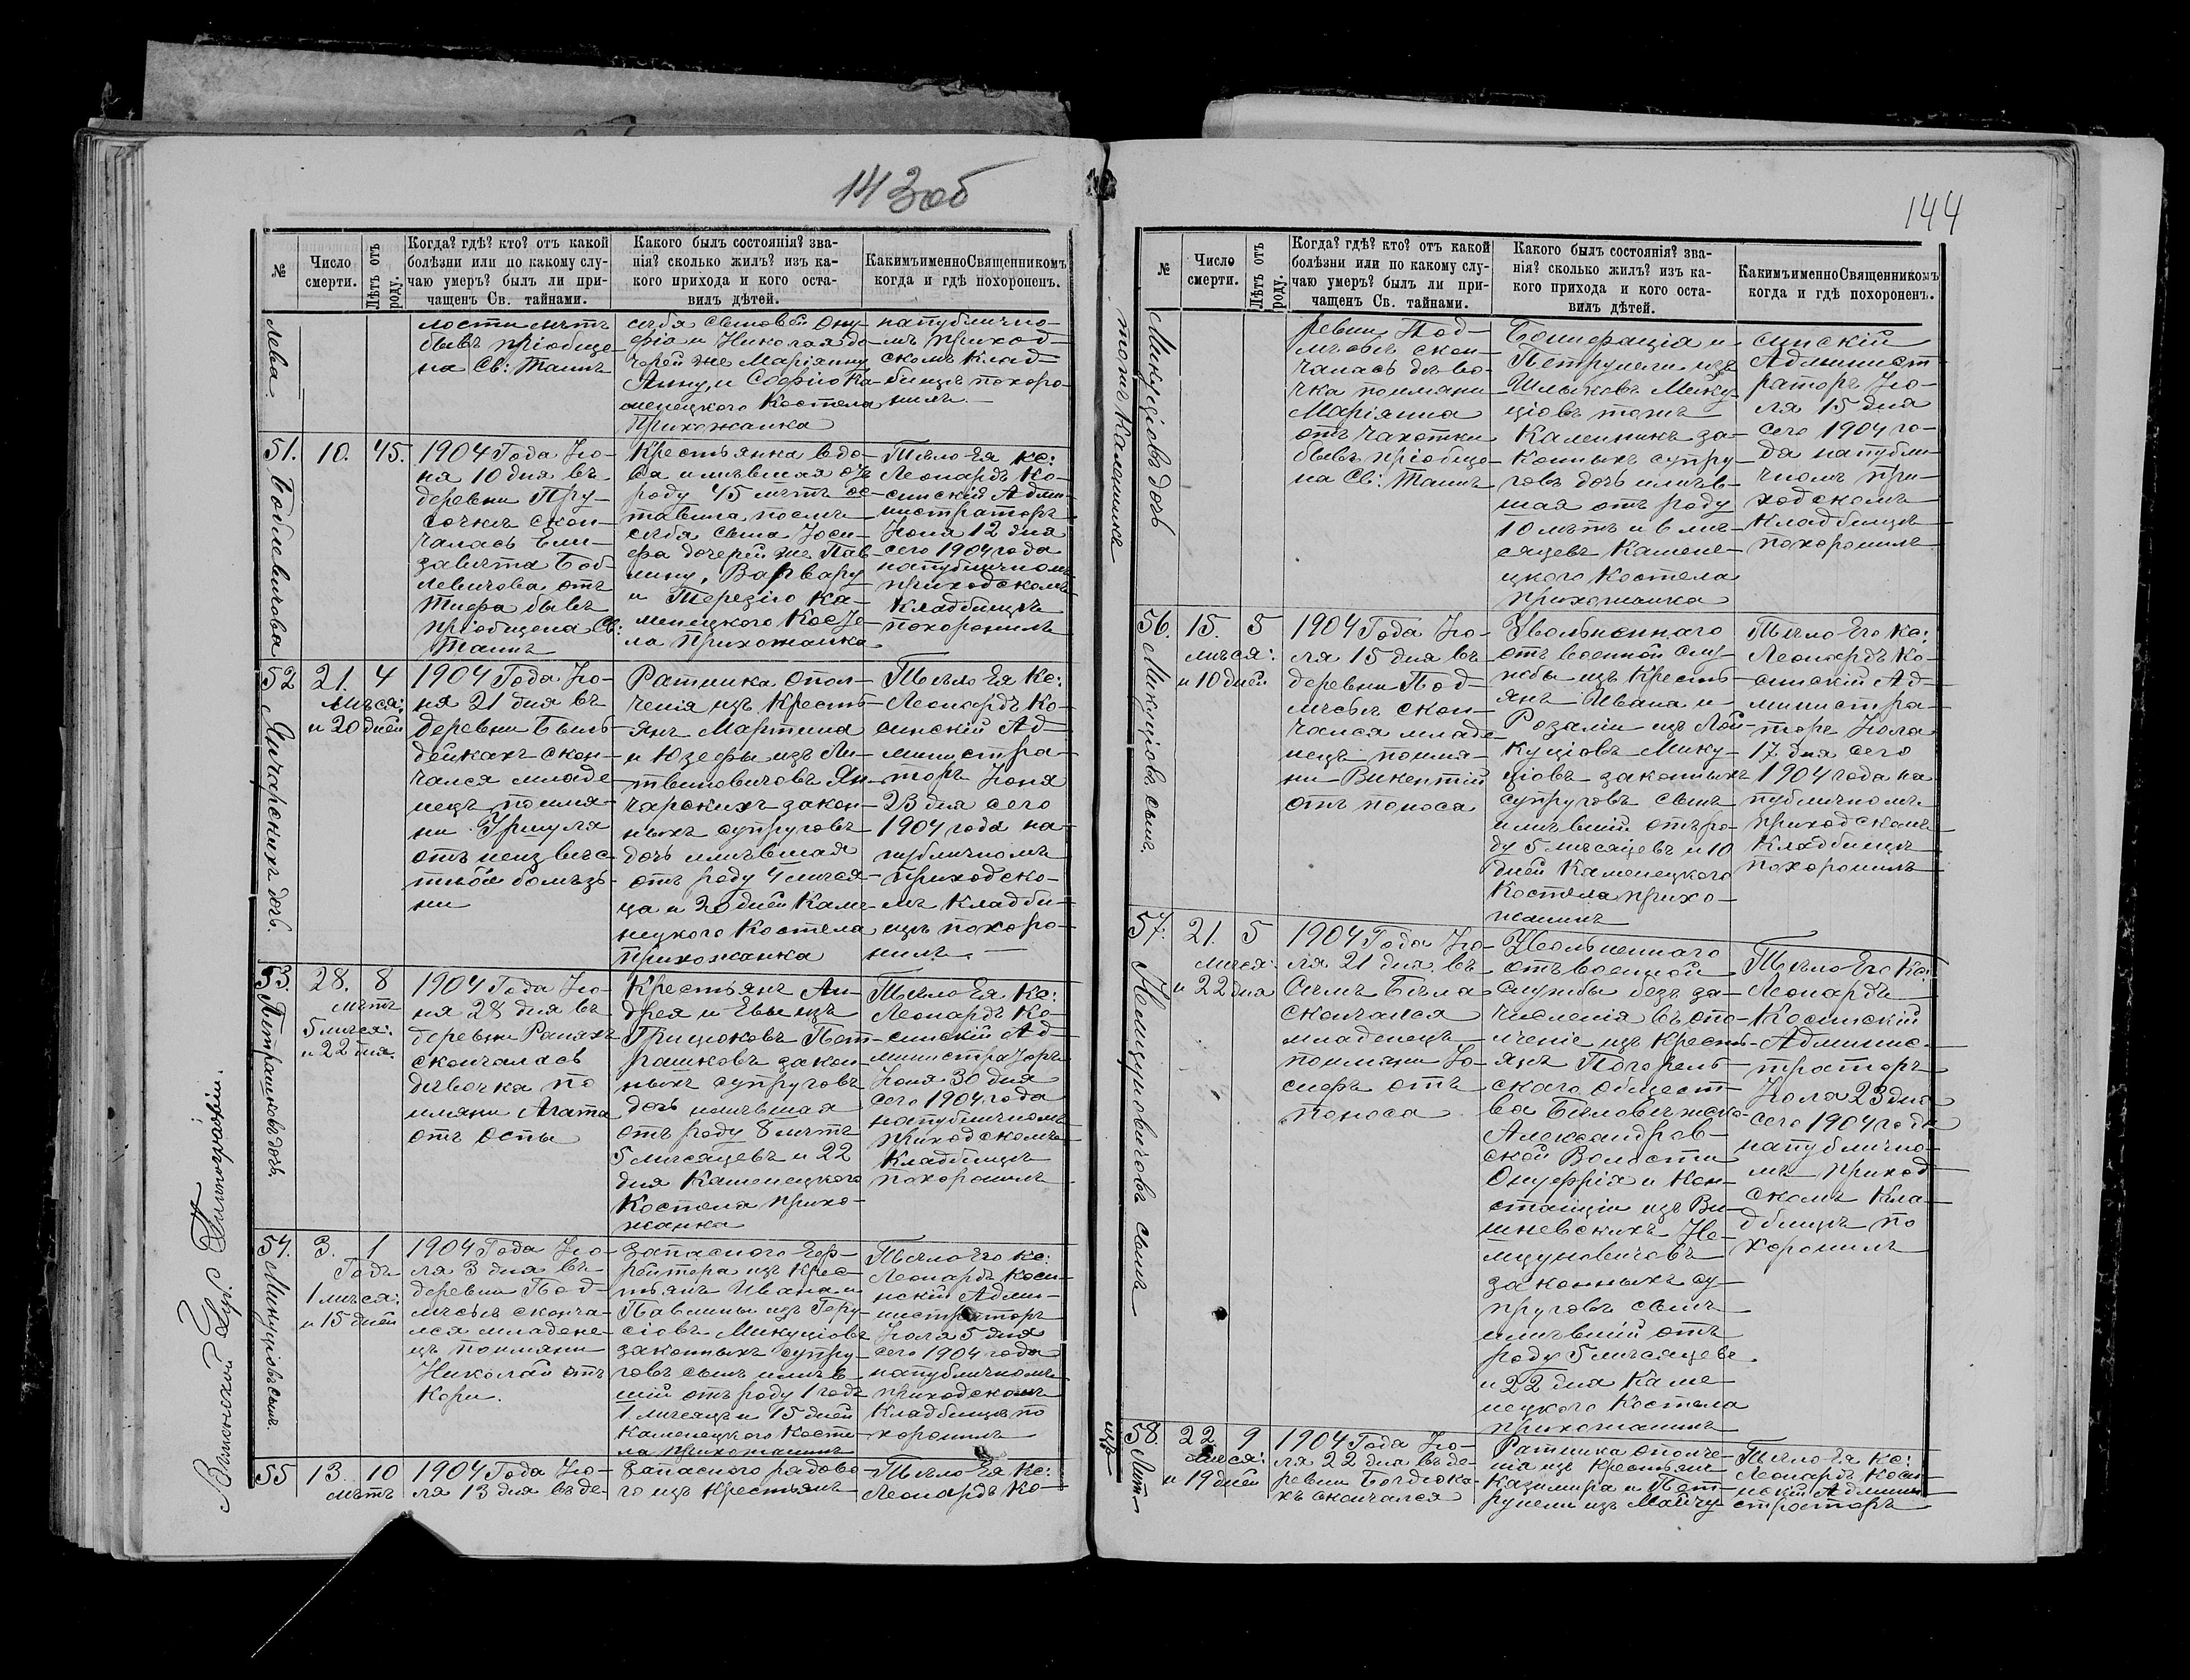 143 об
№
Число
смерти.
Лѣтъ отъ
роду.
Когда? гдѣ? кто? отъ какой
болѣзни или по какому слу-
чаю умеръ? былъ ли при-
чащенъ Св. тайнами.
Какого былъ состоянія? зва-
нія? сколько жилъ? изъ ка-
кого прихода и кого оста-
вилъ дѣтей.
Какимъ именно Священникомъ
когда и гдѣ похороненъ.
лева.
лости лѣтъ
бывъ пріобще-
на Св: Таинъ
себя сыновей Ону-
фрія и Николая до-
черей же Маріянну
Анну, и Софію Ка-
менецкого Костела
Прихожанка
на публично-
мъ приход-
скомъ клад-
бищѣ похоро-
нилъ.
51.
Боблевичова
10.
45.
1904 Года Ію-
ня 10 дня въ
деревни Пру-
сочкѣ скон-
чалась Ели-
завѣта Боб-
левичова отъ
Тифа бывъ
пріобщена Св:
Таинъ
Крестьянка вдо-
ва имѣвшая отъ
роду 45 лѣтъ ос-
тавила послѣ
себя сына Іоси-
фа дочерей же Пав-
лину, Варвару
и Терезію Ка-
менецкого Косте-
ла Прихожанка
Тѣло Ея Кс:
Леонардъ Ко-
синскій Адми-
нистраторъ
Іюня 12 дня
сего 1904 года
на публичномъ
приходскомъ
Кладбищѣ
похоронилъ
52
Янчарскихъ дочь.
21.
4
мѣся:
и 20 дней
1904 Года Ію-
ня 21 дня въ
деревни Бѣль-
дейкахъ скон-
чался младе-
нецъ поимя-
ни Уршуля
отъ неизвѣс-
тной болѣз-
ни
Ратника опол-
ченія изъ Кресть-
янъ Мартина
и Юзефы изъ Ли-
твиновичовъ Ян-
чарскихъ закон-
ныхъ супруговъ
дочь имѣвшая
отъ роду 4 мѣся-
ца и 20 дней Каме-
нецкого Костела
прихожанка
Тѣло Ея Кс:
Леонардъ Ко-
синскій Ад-
министра-
торъ Іюня
23 дня сего
1904 года на
публичномъ
приходско-
мъ кладби-
щѣ похоро-
нилъ.
53.
Петрашковъ дочь.
28.
8
лѣтъ
5 мѣся:
и 22 дня.
1904 Года Ію-
ня 28 дня въ
деревни Рапяхъ
скончалась
дѣвочка по
имяни Агата
отъ оспы
Крестьянъ Ан-
дрея и Евы изъ
Грицюковъ Пет-
рашковъ закон-
ныхъ супруговъ
дочь имѣвшая
отъ роду 8 лѣтъ
5 мѣсяцевъ и 22
дня Каменецкого
Костела прихо-
жанка
Тѣло Ея Кс:
Леонардъ Ко-
синскій Ад-
министраторъ
Іюня 30 дня
сего 1904 года
на публичномъ
приходскомъ
Кладбищѣ
похоронилъ
54.
Микуціовъ сынъ.
3.
1
Годъ
1 мѣся:
и 15 дней
1904 Года Ію-
ля 3 дня въ
деревни Под-
лѣсьѣ сконча-
лся младене-
цъ поимяни
Николай отъ
Кори.
Запасного Еф-
рейтора изъ Крес-
тьянъ Ивана и
Павлины изъ Геру-
сіовъ Микуціовъ
законныхъ супру-
говъ сынъ имѣв-
шій отъ роду 1 годъ
1 мѣсяцъ и 15 дней
Каменецкого Косте-
ла прихожанинъ
Тѣло Его кс:
Леонардъ Коси-
нскій Адми-
нистраторъ
Іюля 5 дня
сего 1904 года
на публичномъ
приходскомъ
Кладбищѣ по
хоронилъ
55
13.
10
лѣтъ
1904 Года Ію-
ля 13 дня въ де-
Запасного рядово-
го изъ крестьянъ
Тѣло Ея Кс:
Леонардъ Ко-
Губ. Типографіи.
144
№
Число
смерти.
Лѣтъ отъ
роду.
Когда? гдѣ? кто? отъ какой
болѣзни или по какому слу-
чаю умеръ? былъ ли при-
чащенъ Св. тайнами.
Какого былъ состоянія? зва-
нія? сколько жилъ? изъ ка-
кого прихода и кого оста-
вилъ дѣтей.
Какимъ именно Священникомъ
когда и гдѣ похороненъ.
Микуціовъ дочь
тожъ Каменникъ
ревни Под-
лѣсьѣ скон-
чалась дѣво-
чка поимяни
Маріянна
отъ чахотки
бывъ пріобще-
на Св: Таинъ
Бонифація и
Петрунели изъ
Шлыковъ Мику-
ціовъ тожъ
Каменникъ за-
конныхъ супру-
говъ дочь имѣв-
шая отъ роду
10 лѣтъ и 6 мѣ-
сяцевъ Камене-
цкого Костела
прихожанка
синскій
Админист-
раторъ Ію-
ля 15 дня
сего 1904 го-
да на публи-
чномъ при-
ходскомъ
Кладбищѣ
похоронилъ
56.
Микуціовъ сынъ.
15.
5
мѣся:
и 10 дней
1904 Года Ію-
ля 15 дня въ
деревни Под-
лѣсьѣ скон-
чался младе-
нецъ поимя-
ни Викентій
отъ поноса
Увольненнаго
отъ военной слу-
жбы изъ Кресть-
янъ Ивана и
Розаліи изъ Лой-
куціовъ Мику-
ціовъ законныхъ
супруговъ сынъ
имѣвшій отъ ро-
ду 5 мѣсяцевъ и 10
дней Каменецкого
Костела прихо-
жанинъ
Тѣло Его Кс:
Леонардъ Ко-
синскій Ад-
министра-
торъ Іюля
17 дня сего
1904 года на
публичномъ
приходскомъ
Кладбищѣ
похоронилъ
57.
Немцуновичовъ сынъ
21.
5
мѣся:
и 22 дня
1904 Года Ію-
ля 21 дня въ
Селѣ Бѣла
скончался
младенецъ
поимяни Іо-
сифъ отъ
поноса
Увольненнаго
отъ военной
службы безъ за-
численія въ опо-
лченіе изъ Кресть-
янъ Погорель-
ского общест-
ва Бѣловѣжско-
Александров-
ской Волости
Онуфрія и Кон-
станціи изъ Ви-
шневскихъ Не-
мцуновичовъ
законныхъ су-
пруговъ сынъ
имѣвшій отъ
роду 5 мѣсяцевъ
и 22 дня Каме-
нецкого Костела
прихожанинъ
Тѣло Его Кс:
Леонардъ
Косинскій
Админис-
траторъ
Іюля 23 дня
сего 1904 года
на публично-
мъ приход-
скомъ Кла-
дбищѣ по
хоронилъ
58.
22
9
мѣся:
и 19 дней
1904 Года Ію-
ля 22 дня въ де-
ревни Богдюка-
хъ скончался
Ратника ополче-
нія изъ Крестьянъ
Казимира и Пет-
рунели изъ Майчу-
Тѣло Ея Кс:
Леонардъ Коси-
нскій Админи-
страторъ